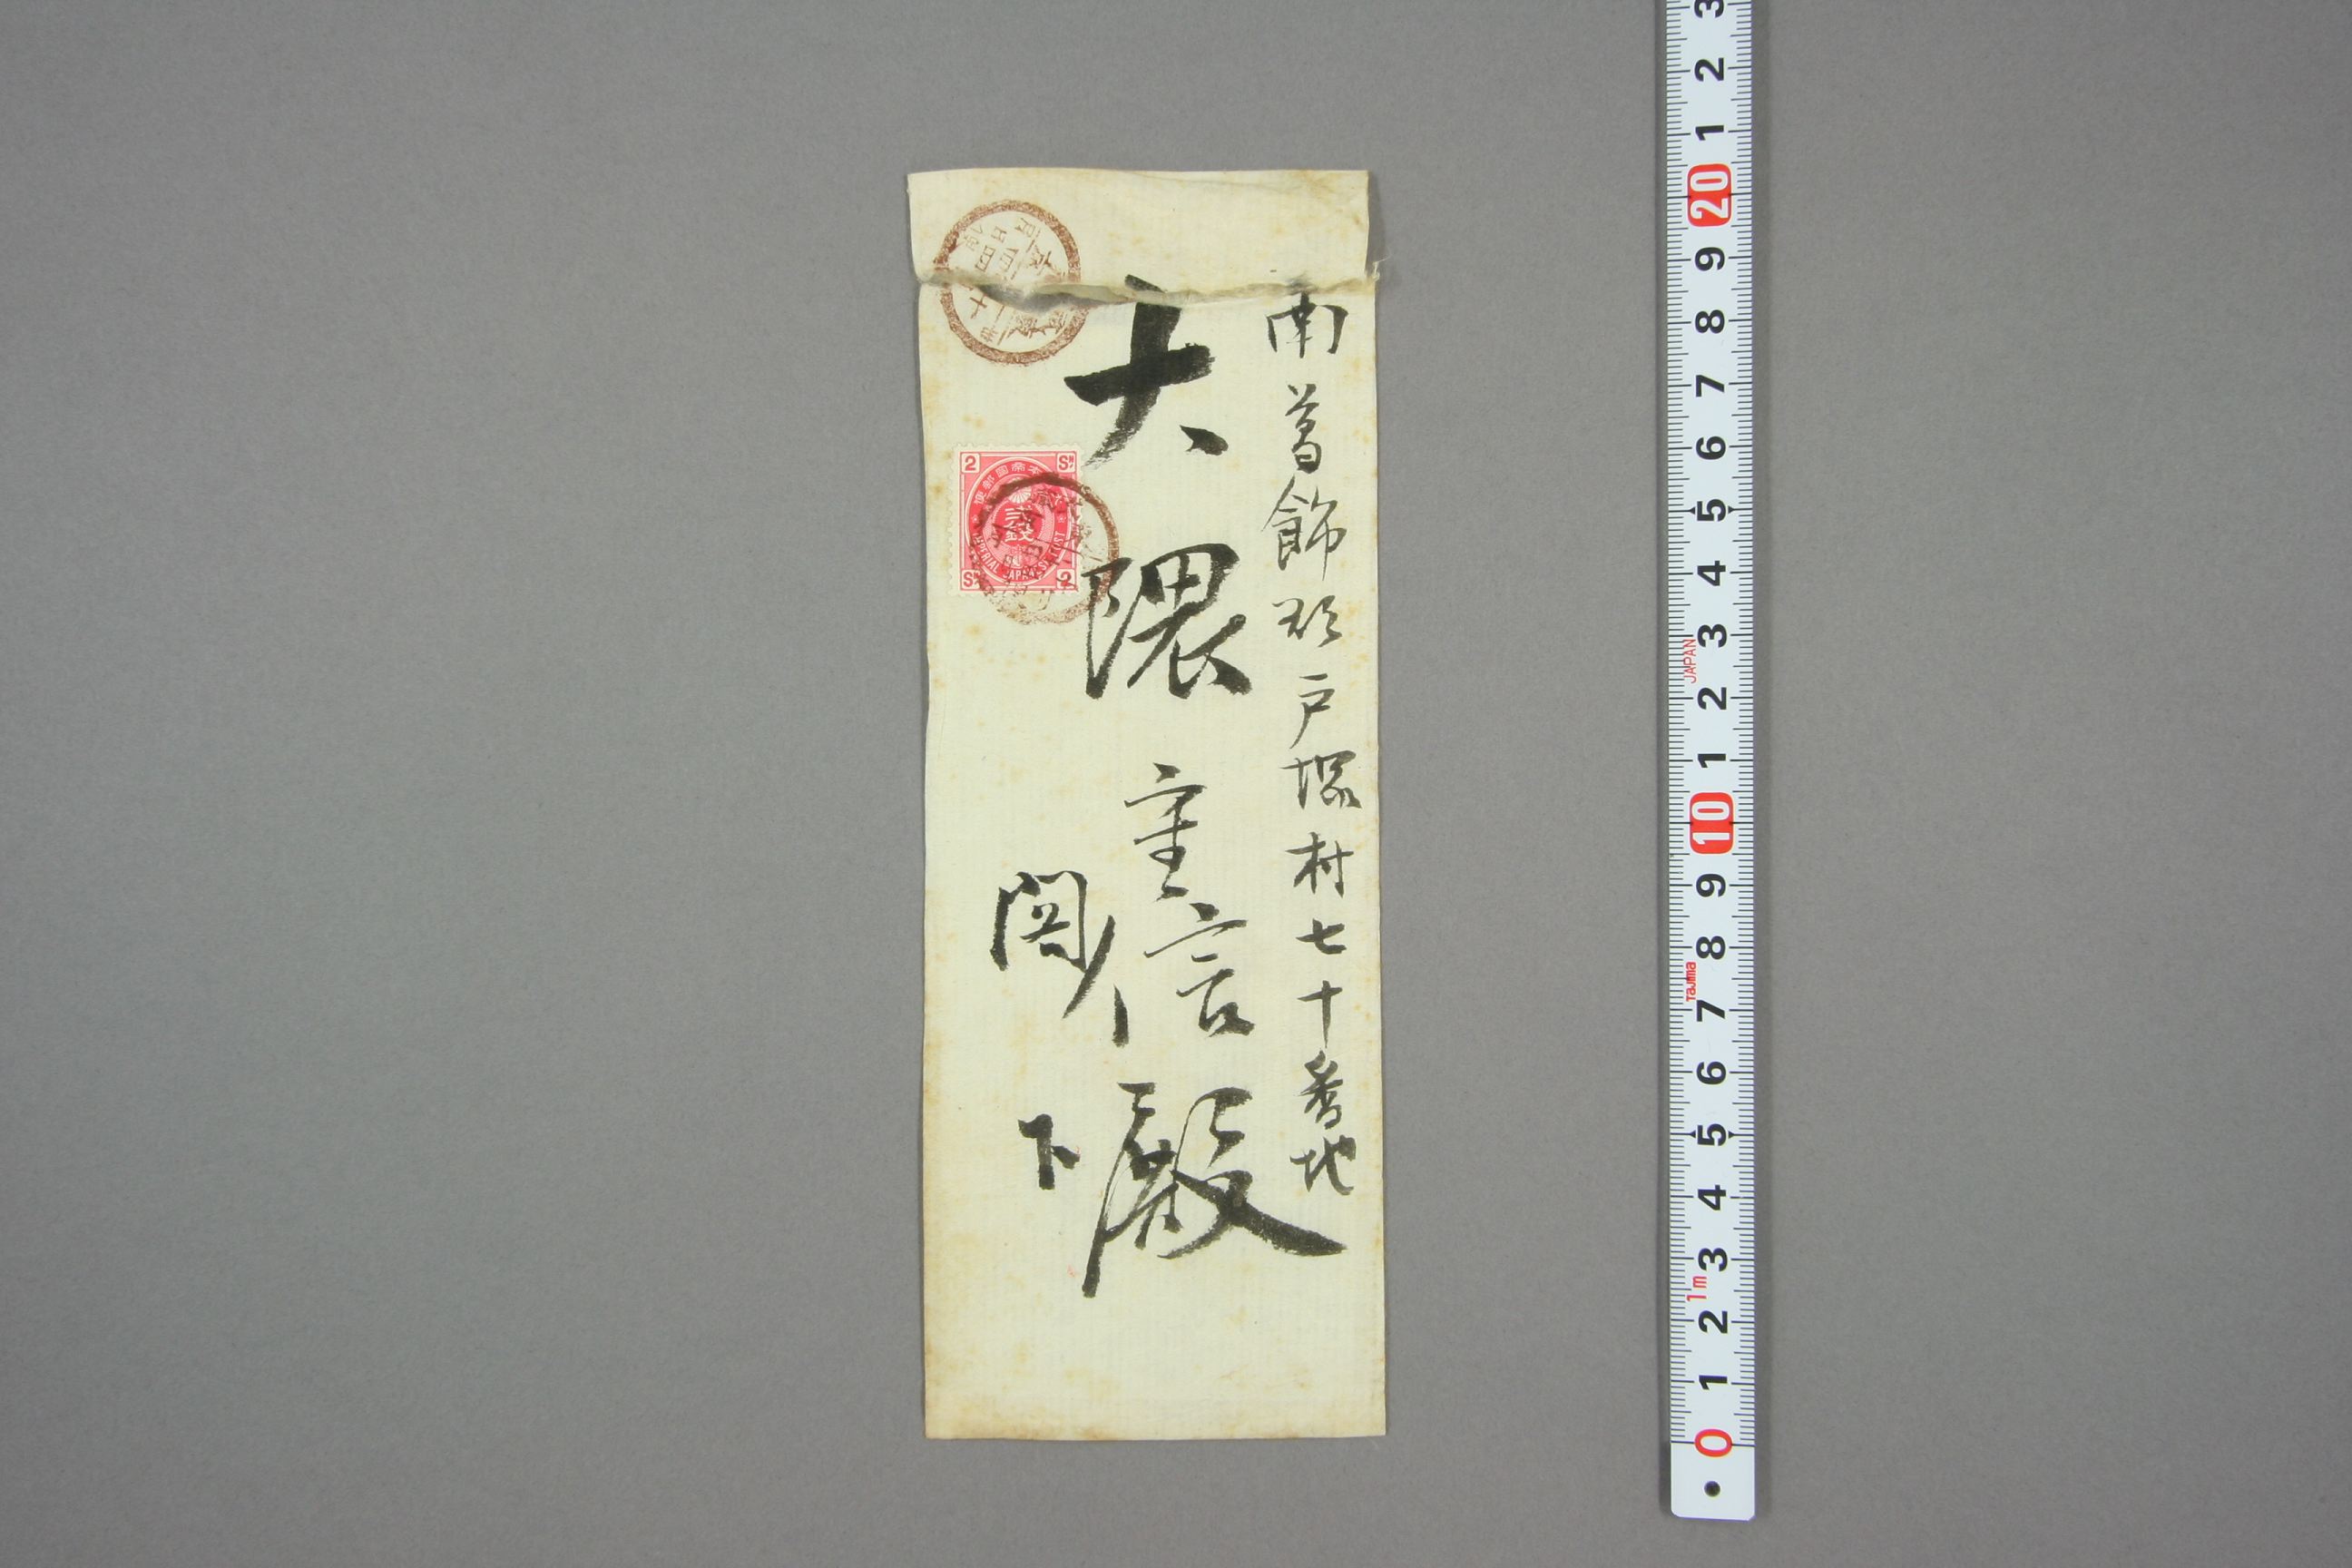 南葛飾郡戸塚村七十番地
大隈重信殿
閣下
2 SN
貳錢
IMPERIAL JAPANESE POST
SN 2
3
2
1
20
9
8
7
6
5
4
3
JAPAN
2
1
10
9
8
Tajima
7
6
5
4
3
1m
2
1
0